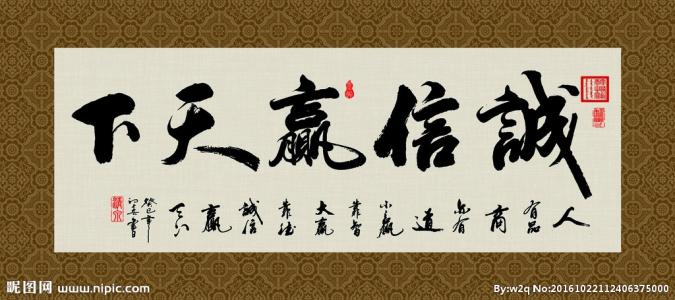 誠信贏天下
人有品商亦有道小贏靠智大贏靠德誠信贏天下
癸巳年
昵图网 www.nipic.com
By:w2q No:20161022112406375000